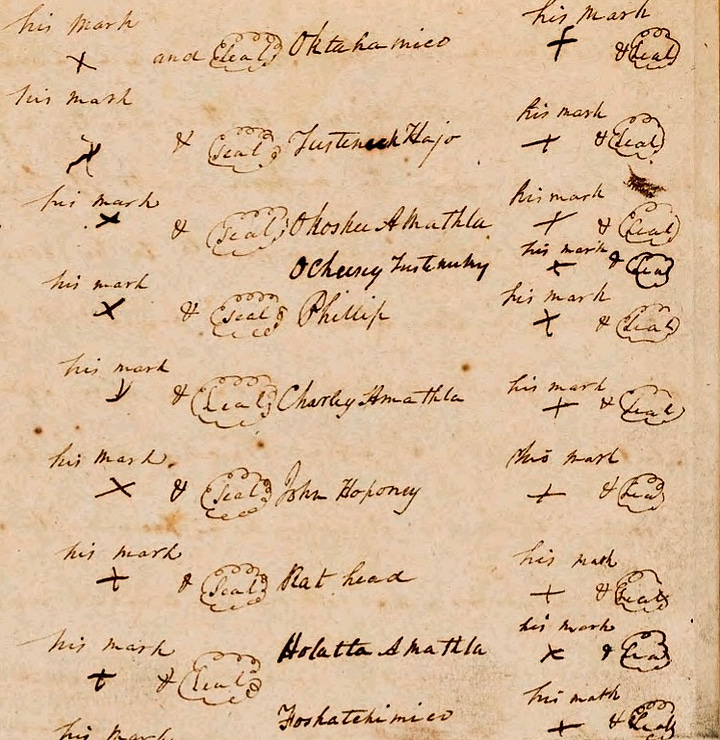 his mark his mark
× and Seal Oktahamico + & Seal
his mark
his mark
× & Seal Tusteneck Hajo + & Seal
his mark his mark
× & Seal Ohoshee Amathla + & Seal
his mark
Ocheesey Tustenuky × & Seal
his mark his mark
× & Seal Phillip × & Seal
his mark his mark
& Seal Charley Amathla + & Seal
his mark his mark
× & Seal John Hoponey + & Seal
his mark his mark
+ & Seal Rat head + & Seal
his mark
his mark Holatta Amathla × & Seal
+ & Seal
his mark
his mark Foshatchimico + & Seal